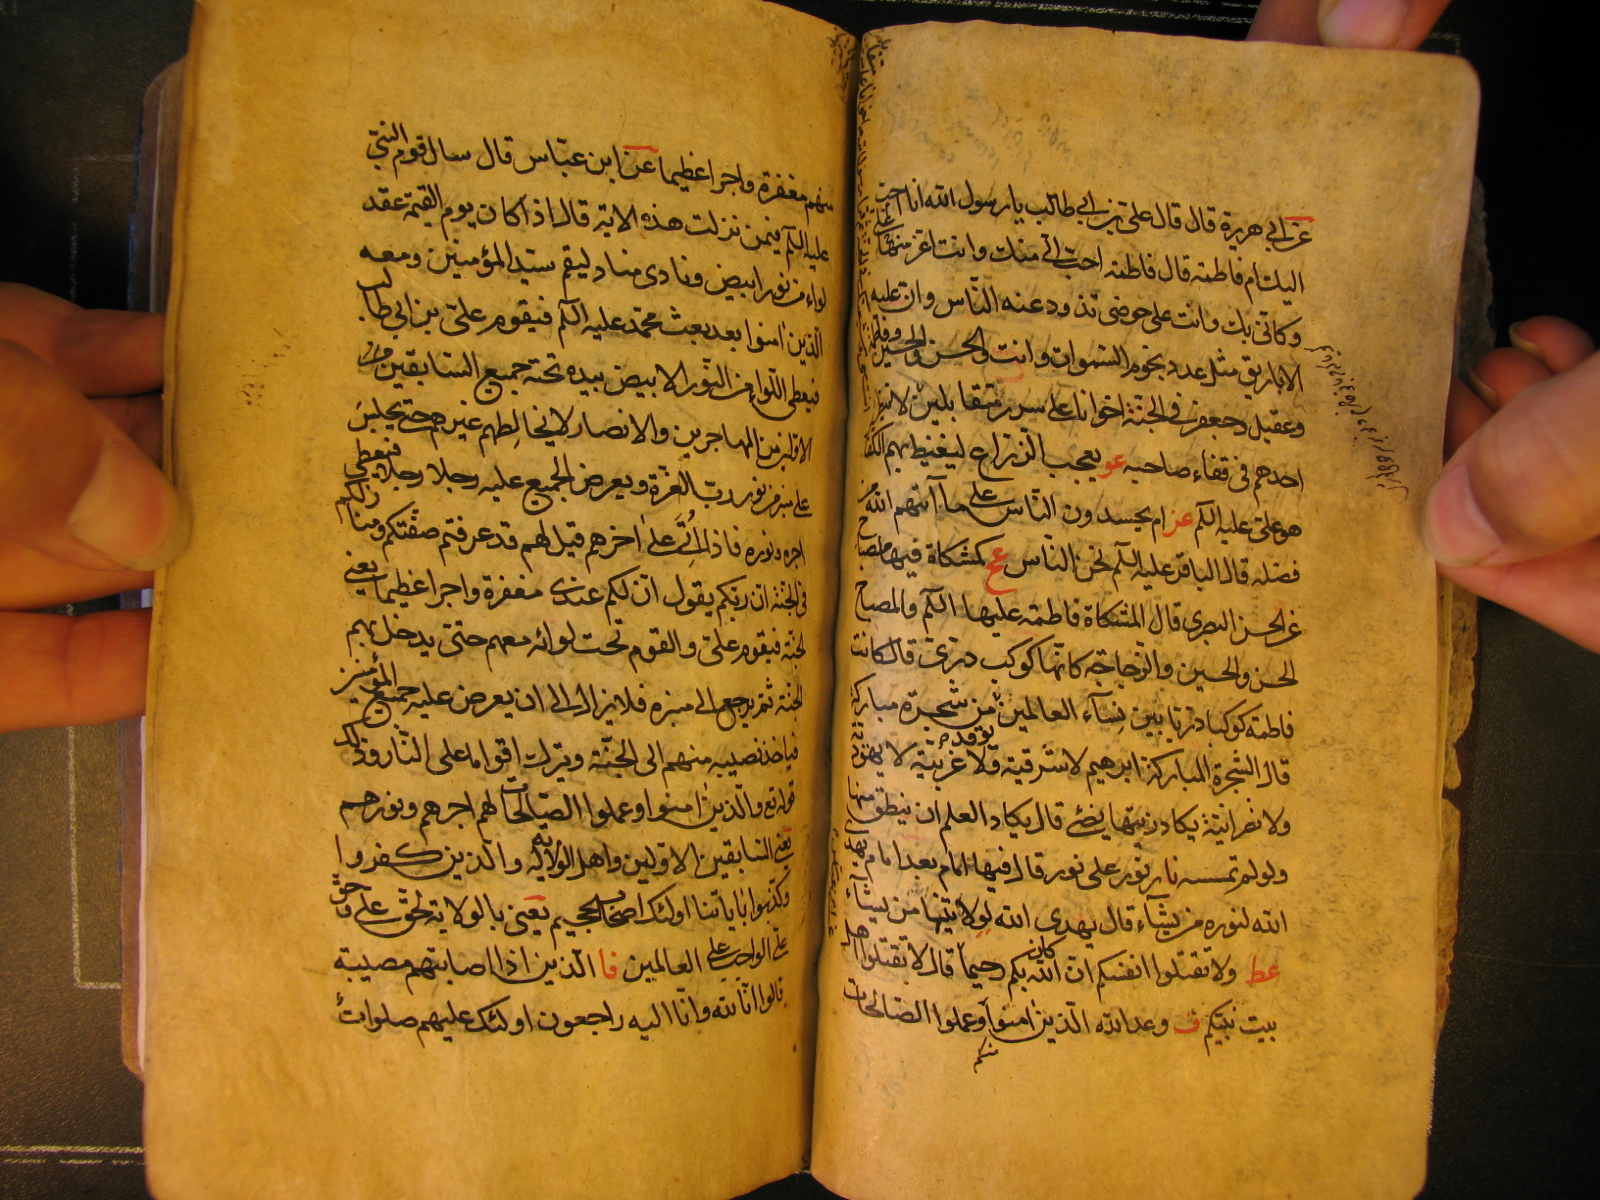 عن ابي هريرة قال قال علي بن ابي طالب يا رسول الله انا احب
اليك ام فاطمة قال فاطمة احب الي منك وانت اعز علي منها
وكاني بك وانت على حوضي تذود عنه الناس وان عليه
الاباريق مثل عدد نجوم السموات وانت والحسن والحسين وفاطمة
وعقيل وجعفر في الجنة اخوانا على سرر متقابلين لا ينظر
احدهم في قفاء صاحبه عو يعجب الزراع ليغيظ بهم الكفار
هو علي عليه السلم عز ام يحسدون الناس على ما آتيهم الله من
فضله قال الباقر عليه السلم نحن الناس ع كمشكاة فيها مصباح
عن الحسن البصري قال المشكاة فاطمة عليها السلم والمصباح
الحسن والحسين والزجاجة كانها كوكب دري قال كانت
فاطمة كوكبا دريا بين نساء العالمين يوقد من شجرة مباركة
قال الشجرة المباركة ابرهيم لا شرقية ولا غربية لا يهودية
ولا نصرانية يكاد زيتها يضئ قال يكاد العلم ان ينطق منها
ولو لم تمسسه نار نور على نور قال فيها امام بعد امام يهدي
الله لنوره من يشآء قال يهدي الله لولايتها من يشآء
عط ولا تقتلوا انفسكم ان الله كان بكم رحيما قال لا تقتلوا اهل
بيت نبيكم ف وعد الله الذين امنوا وعملوا الصالحات
منكم
منهم مغفرة واجرا عظيما عن ابن عباس قال سال قوم النبي
عليه السلم فيمن نزلت هذه الاية قال اذا كان يوم القيمة عقد
لواء من نور ابيض ونادى مناد ليقم سيد المؤمنين ومعه
الذين امنوا بعد بعث محمد عليه السلم فيقوم علي بن ابي طالب
فيعطى اللواء من النور الابيض بيده تحته جميع السابقين من
الاولين من المهاجرين والانصار لا يخالطهم غيرهم حتى يجلس
على منبر من نور رب العزة ويعرض الجميع عليه رجلا رجلا فيعطى
اجره ونوره فاذا اُتي على اخرهم قيل لهم قد عرفتم صفتكم ومنازلكم
في الجنة ان ربكم يقول ان لكم عندي مغفرة واجرا عظيما يعني
الجنة فيقوم علي والقوم تحت لوائه معهم حتى يدخل بهم
الجنة ثم يرجع الى منبره فلا يزال الى ان يعرض عليه جميع المؤمنين
فياخذ نصيبه منهم الى الجنة ويترك اقواما على النار وذلك
قوله تع والذين امنوا وعملوا الصالحات لهم اجرهم ونورهم
يعني السابقين الاولين واهل الولاية له والذين كفروا
وكذبوا باياتنا اولئك اصحاب الجحيم يعني بالولاية لحق علي وحق
علي الواجب على العالمين فا الذين اذا اصابتهم مصيبة
قالوا انا لله وانا اليه راجعون اولئك عليهم صلوات